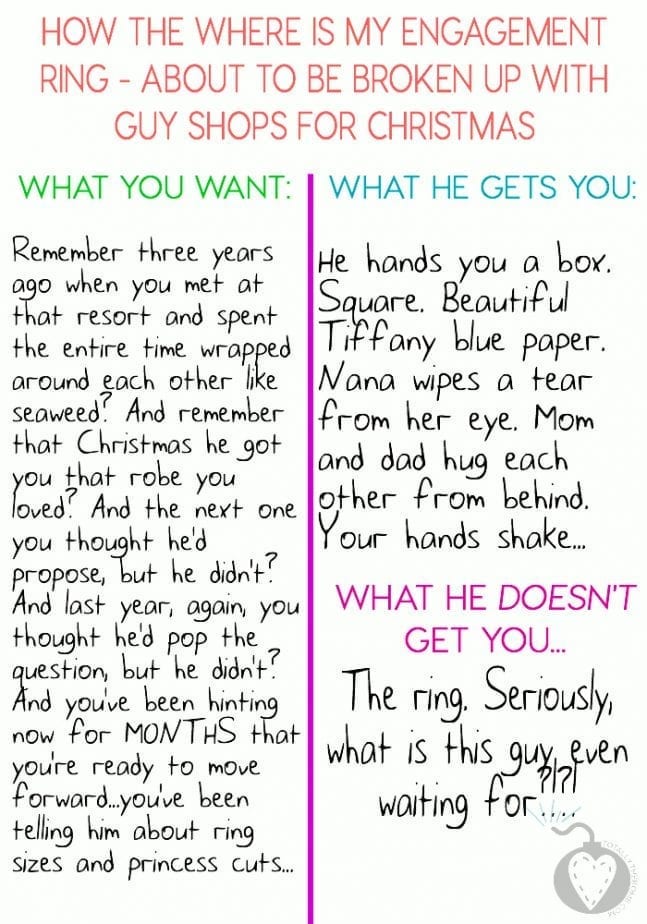 HOW THE WHERE IS MY ENGAGEMENT
RING - ABOUT TO BE BROKEN UP WITH
GUY SHOPS FOR CHRISTMAS
WHAT YOU WANT:
Remember three years
ago when you met at
that resort and spent
the entire time wrapped
around each other like
seaweed? And remember
that Christmas he got
you that robe you
loved? And the next one
you thought he'd
propose, but he didn't?
And last year, again, you
thought he'd pop the
question, but he didn't?
And you've been hinting
now for MONTHS that
you're ready to move
forward...you've been
telling him about ring
sizes and princess cuts...
WHAT HE GETS YOU:
He hands you a box.
Square. Beautiful
Tiffany blue paper.
Nana wipes a tear
from her eye. Mom
and dad hug each
other from behind.
Your hands shake...
WHAT HE DOESN'T
GET YOU...
The ring. Seriously,
what is this guy even
waiting for?!?!....
TOTALLYTHEBOMB.COM